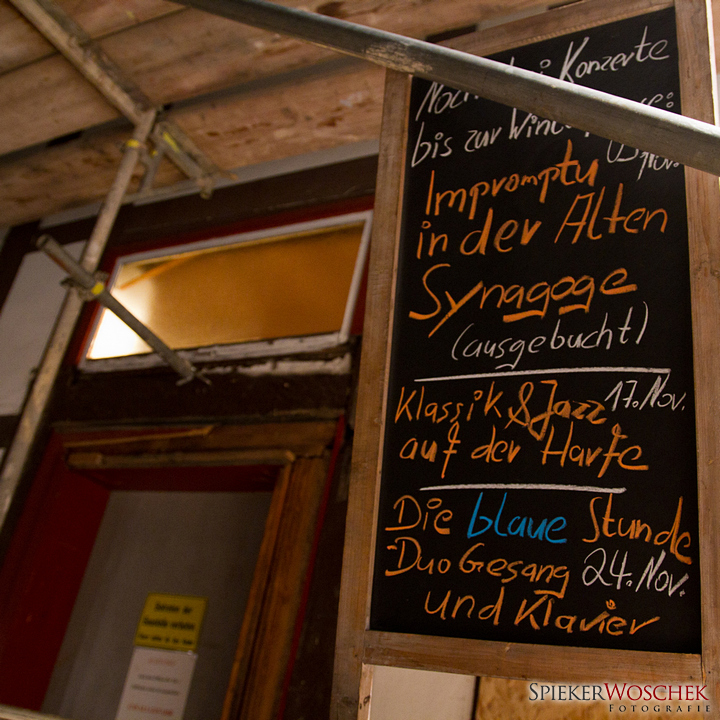 Konzerte
bis zur
Impromptu
in der Alten
Synagoge
(ausgebucht)
Klassik & Jazz 17. Nov.
auf der Harfe
Die blaue Stunde
Duo Gesang 24. Nov.
und Klavier
Betreten der
Baustelle verboten
SPIEKERWOSCHEK
FOTOGRAFIE